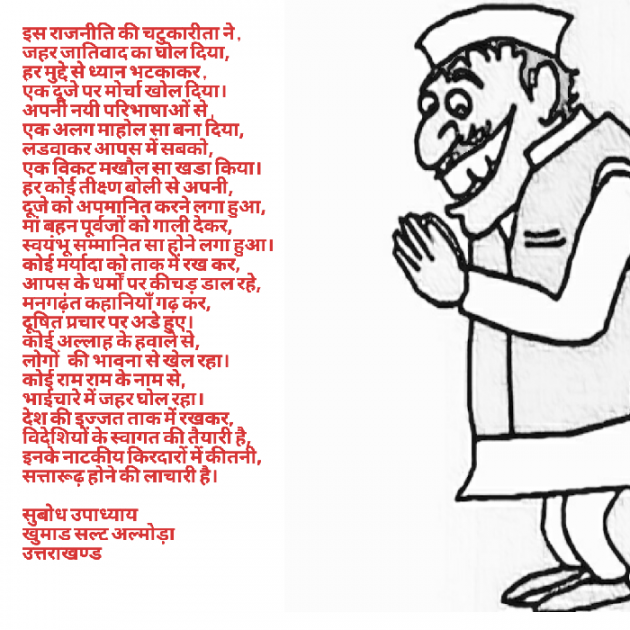 इस राजनीति की चटुकारीता ने ,
जहर जातिवाद का घोल दिया,
हर मुद्दे से ध्यान भटकाकर ,
एक दूजे पर मोर्चा खोल दिया।
अपनी नयी परिभाषाओं से ,
एक अलग माहोल सा बना दिया,
लडवाकर आपस में सबको,
एक विकट मखौल सा खडा किया।
हर कोई तीक्ष्ण बोली से अपनी,
दूजे को अपमानित करने लगा हुआ,
मां बहन पूर्वजों को गाली देकर,
स्वयंभू सम्मानित सा होने लगा हुआ।
कोई मर्यादा को ताक में रख कर,
आपस के धर्मों पर कीचड़ डाल रहे,
मनगढ़ंत कहानियाँ गढ़ कर,
दूषित प्रचार पर अडे हुए।
कोई अल्लाह के हवाले से,
लोगों की भावना से खेल रहा।
कोई राम राम के नाम से,
भाईचारे में जहर घोल रहा।
देश की इज्जत ताक में रखकर,
विदेशियों के स्वागत की तैयारी है,
इनके नाटकीय किरदारों में कीतनी,
सत्तारूढ़ होने की लाचारी है।
सुबोध उपाध्याय
खुमाड सल्ट अल्मोड़ा
उत्तराखण्ड